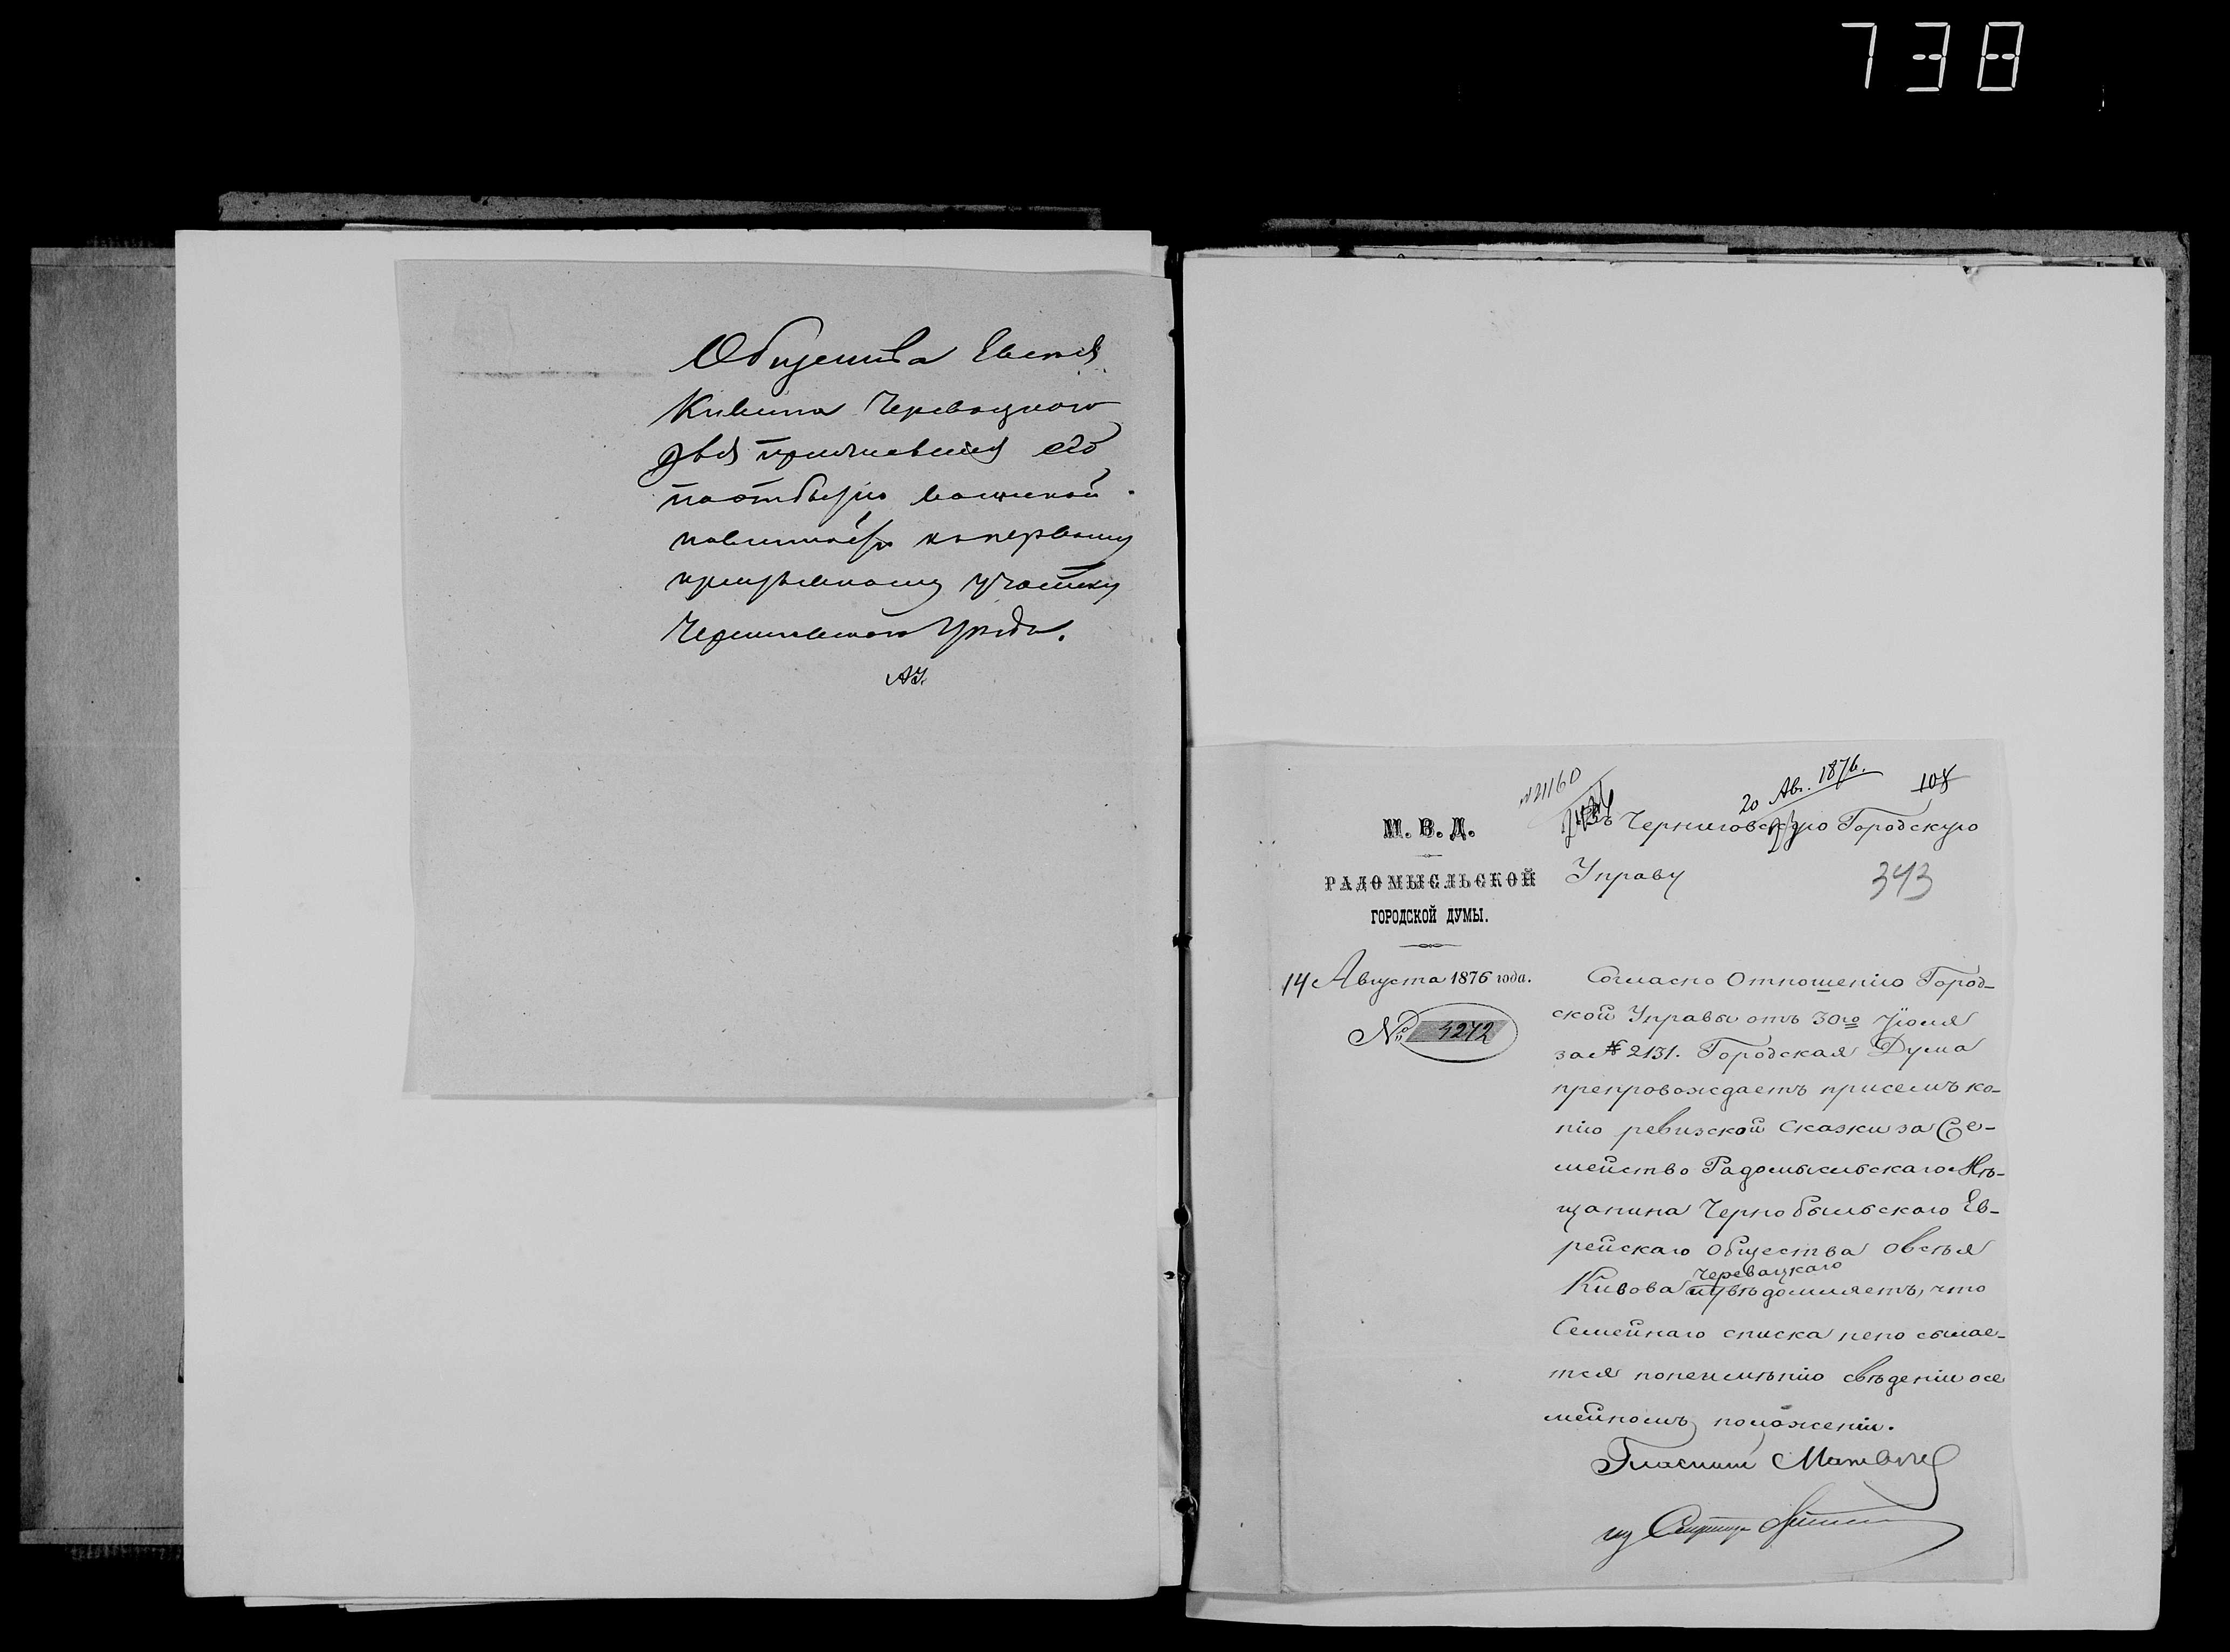 738
Общества Евсея
Кивина Черевацкаго
для приписки его
по отбытію воинской
повинности къ первому
призывному участку
Черниговскаго уѣзда.
№ 1160
20 Авг. 1876.
108
М. В. Д.
РАДОМЫСЛЬСКОЙ
ГОРОДСКОЙ ДУМЫ.
14 Августа 1876 года.
№ 4272
Въ Черниговскую Городскую
Управу
343
Согласно Отношенію Город-
ской Управы отъ 30го Іюля
за № 2131. Городская Дума
препровождаетъ присемъ ко-
пію ревизской Сказки за Се-
мейство Радомысльскаго Мѣ-
щанина Чернобыльскаго Ев-
рейскаго Общества Овсѣя
Кивова Черевацкаго увѣдомляетъ, что
Семейнаго списка непосылае-
тся понеимѣнію свѣденіи осе
мейномъ положеніи.
Гласный